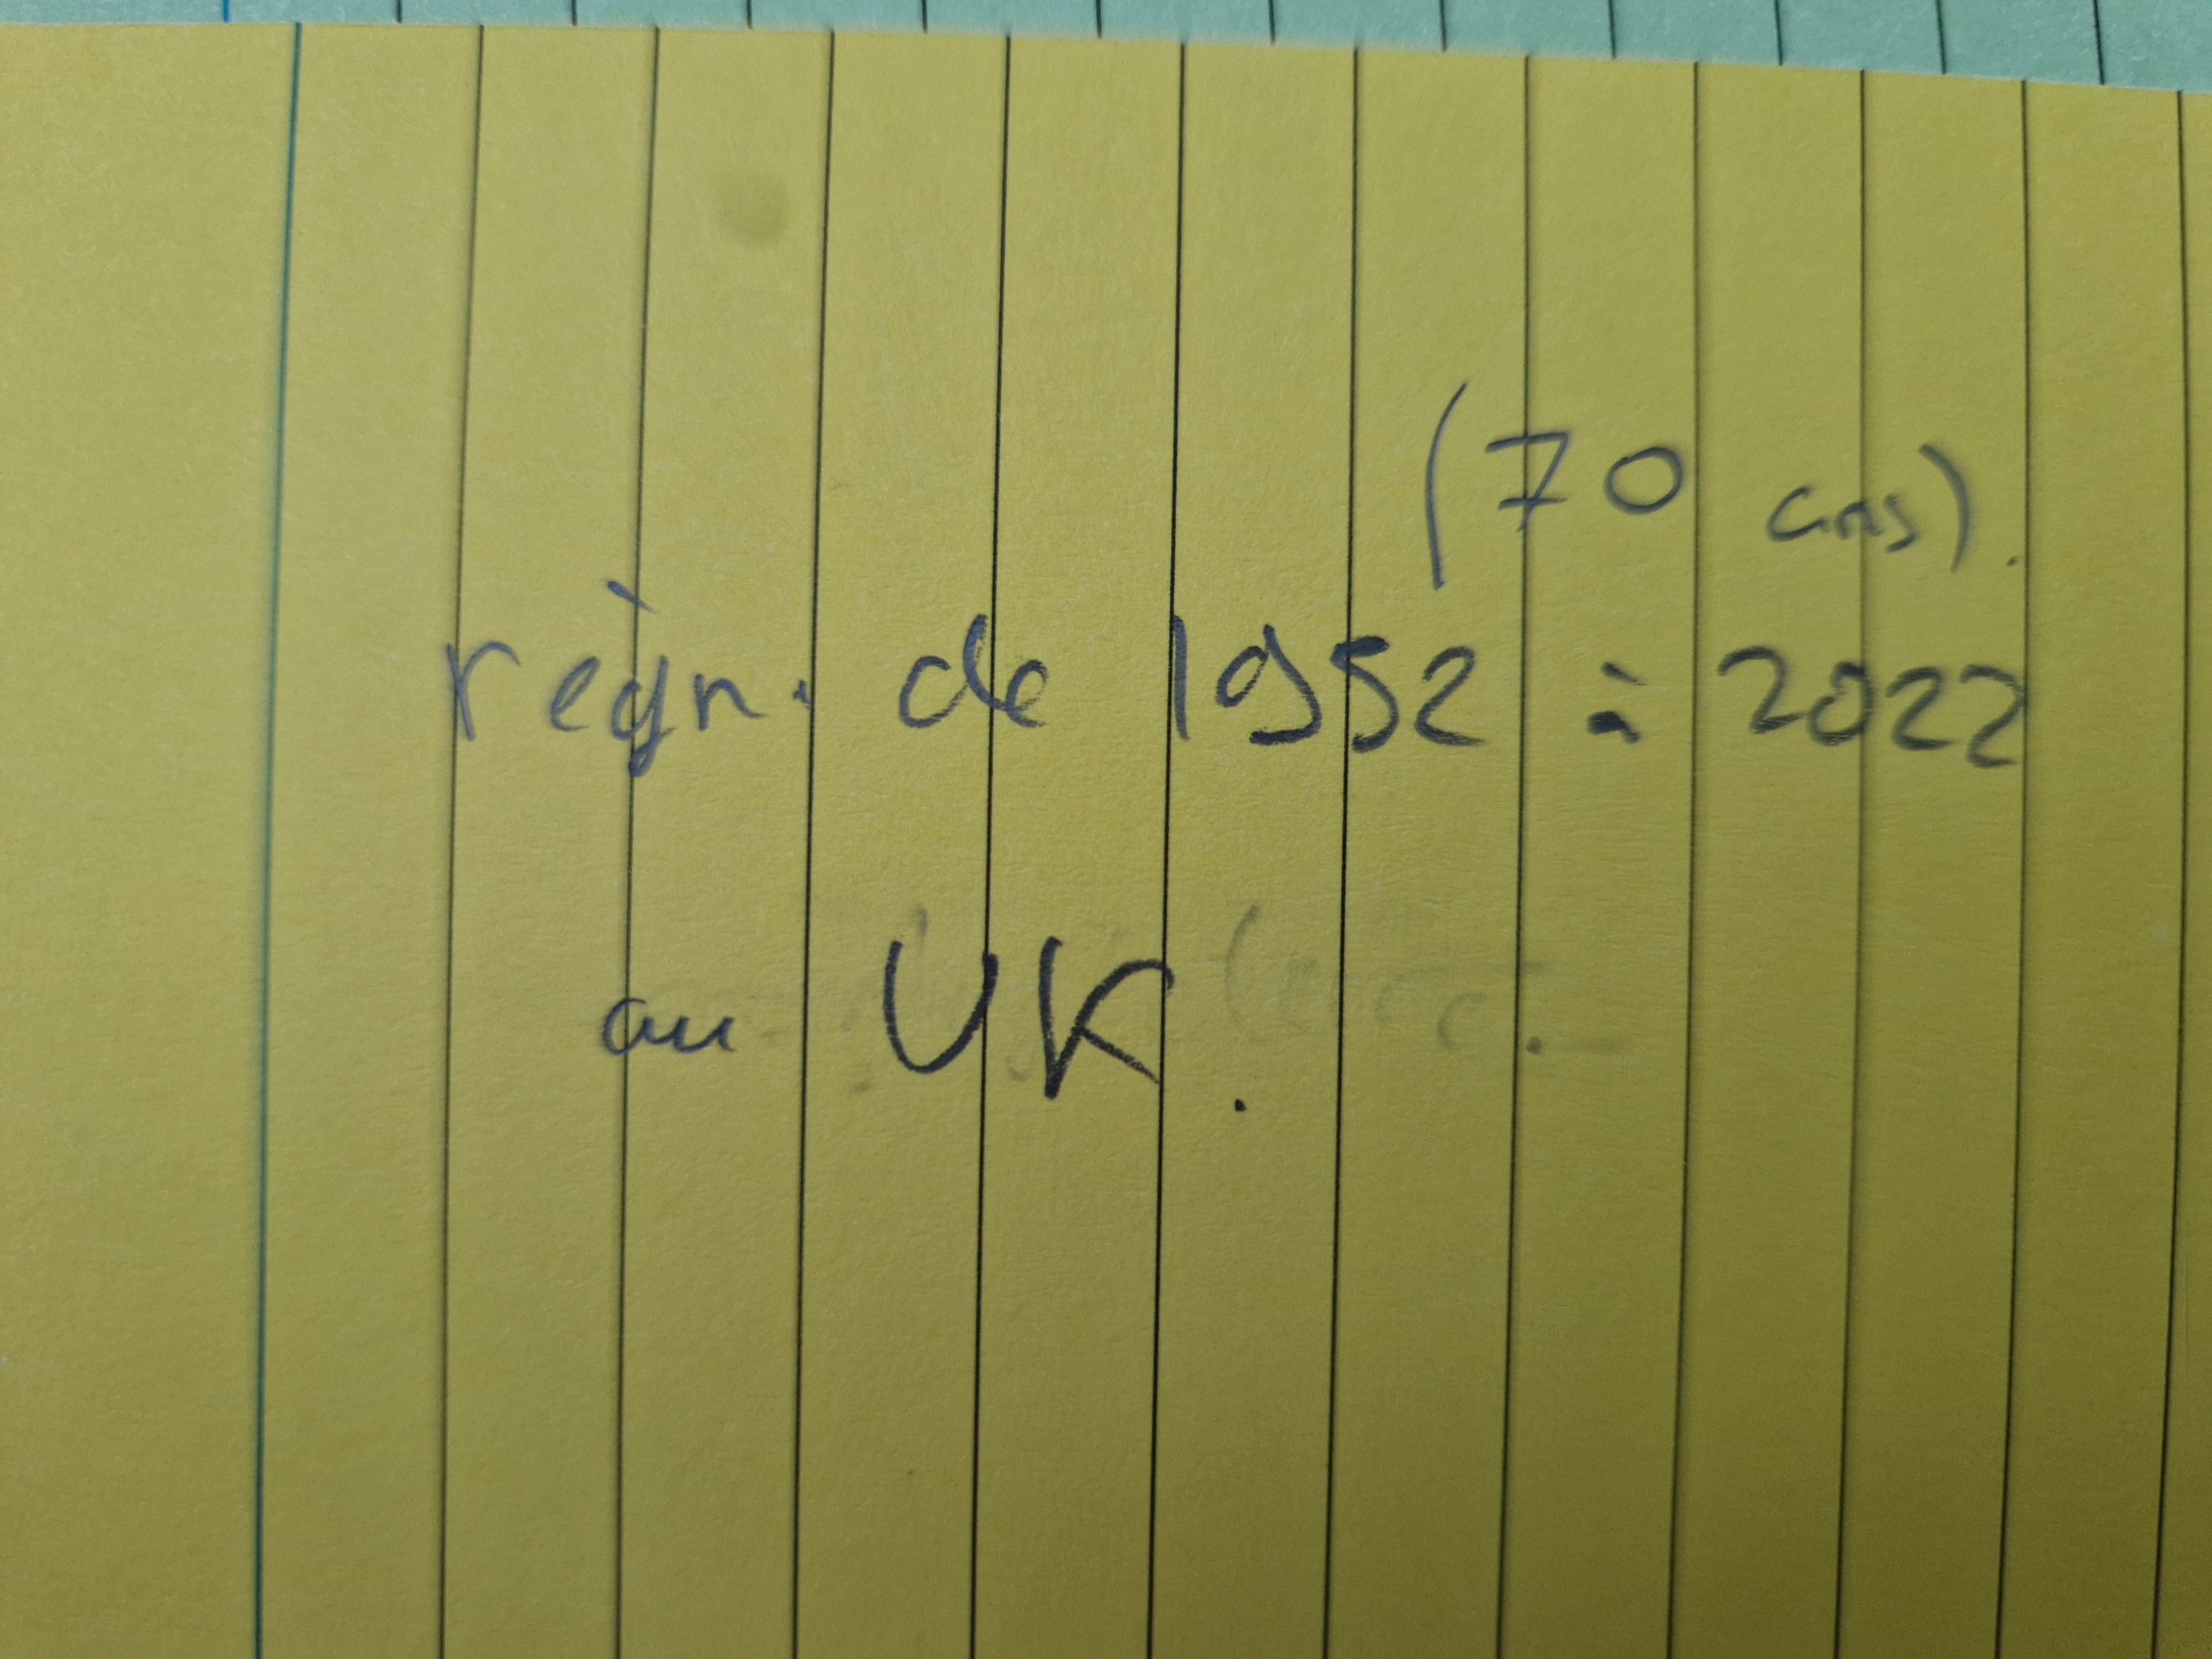 (70 ans).
règn. de 1952 à 2022
au UK.